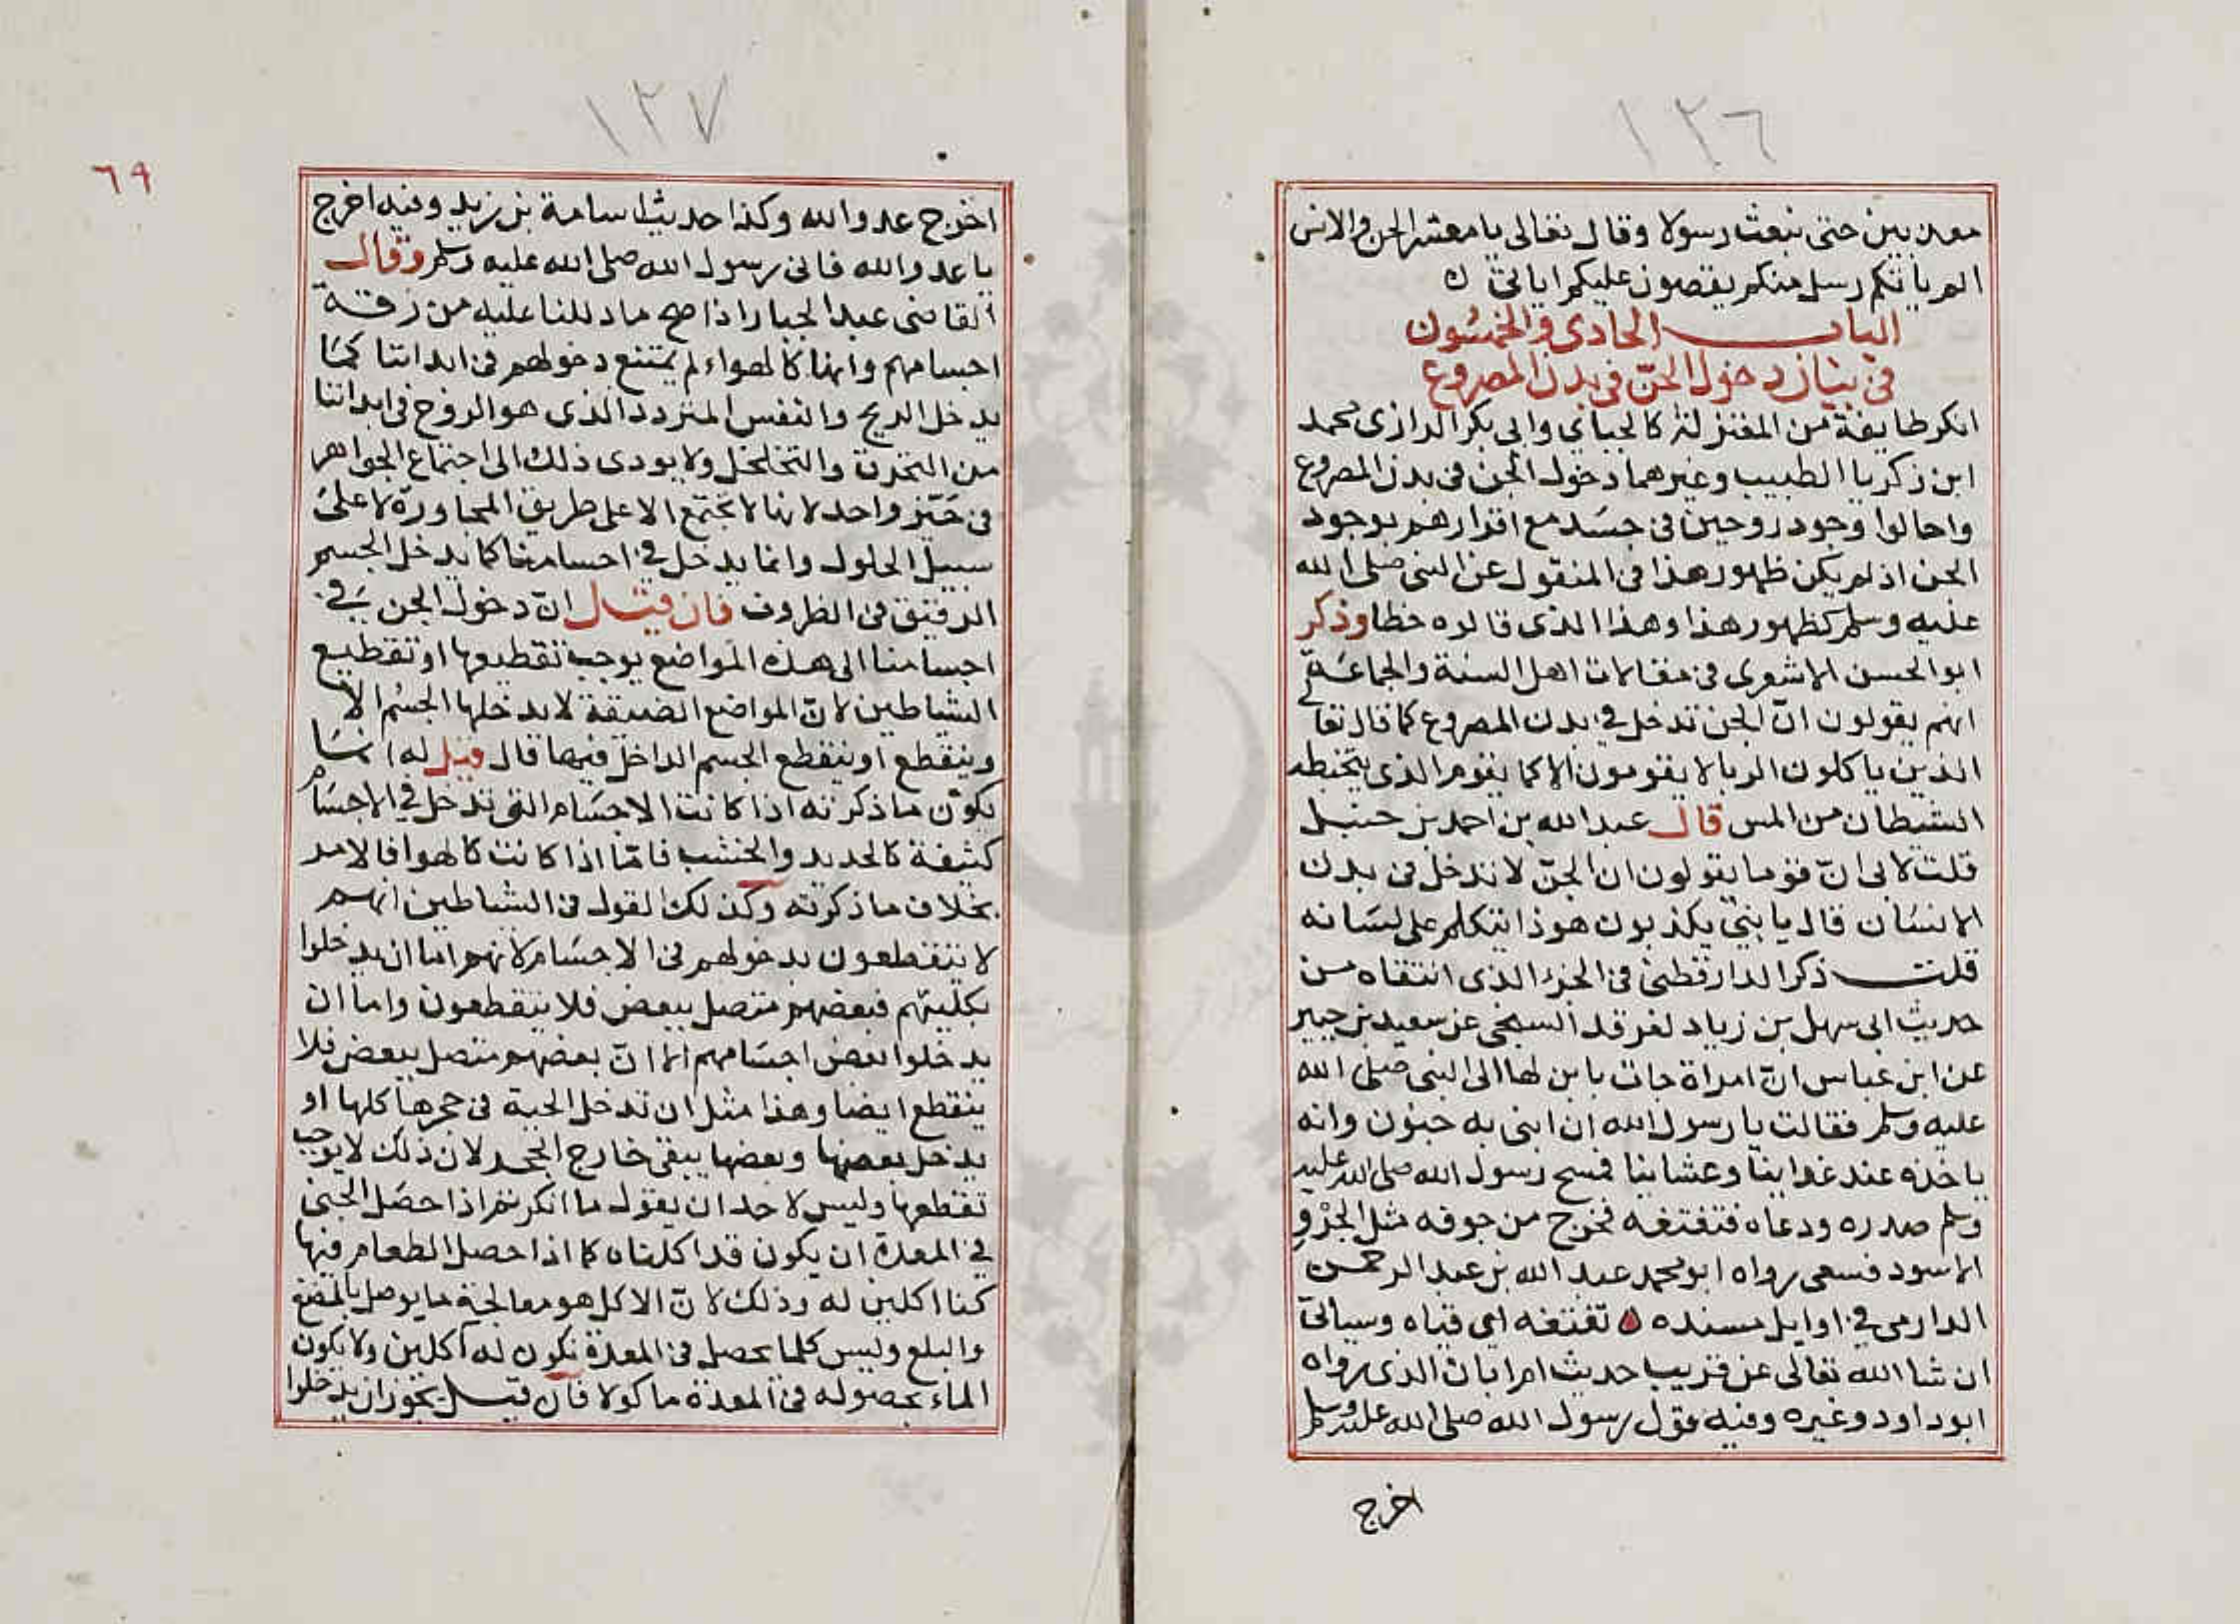 ١٣٦
معذبين حتى نبعث رسولا وقال تعالى يا معشر الجن والانس
الم ياتكم رسل منكم يقصون عليكم اياتي ه
الباب الحادي والخمسون
في بيان دخول الجن في بدن المصروع
انكر طايفة من المعتزلة كالجباي وابى بكر الرازى محمد
ابن زكريا الطبيب وغيرهما دخول الجن فى بدن المصروع
واحالوا وجود روحين فى جسد مع اقرارهم بوجود
الجن اذ لم يكن ظهور هذا فى المنقول عن النبى صلى الله
عليه وسلم كظهور هذا وهذا الذى قالوه خطا وذكر
ابو الحسن الاشعرى فى مقالات اهل السنة والجماعة
انهم يقولون ان الجن تدخل في بدن المصروع كما قال تعالى
الذين ياكلون الربا لا يقومون الا كما يقوم الذى يتخبطه
الشيطان من المس قال عبد الله بن احمد بن حنبل
قلت لابى ان قوما يقولون ان الجن لا تدخل فى بدن
الانسان قال يا بني يكذبون هوذا يتكلم على لسانه
قلت ذكر الدارقطنى فى الجزء الذى انتقاه من
حديث ابى سهل بن زياد لفرقد السبخى عن سعيد بن جبير
عن ابن عباس ان امراة جات بابن لها الى النبى صلى الله
عليه وسلم فقالت يا رسول الله ان ابنى به جنون وانه
ياخذه عند غداينا وعشاينا فمسح رسول الله صلى الله عليه
وسلم صدره ودعاه فتفتغه فخرج من جوفه مثل الجرو
الاسود فسعى رواه ابو محمد عبد الله بن عبد الرحمن
الدارمى في اوايل مسنده ه تفتغه اى قياه وسياتى
ان شا الله تعالى عن قريب حديث ام ابان الذى رواه
ابو داود وغيره وفيه قول رسول الله صلى الله عليه وسلم
اخرج
١٣٧
٦٩
اخرج عدو الله وكذا حديث اسامة بن زيد وفيه اخرج
يا عدو الله فانى رسول الله صلى الله عليه وسلم وقال
القاضى عبد الجبار اذا صح ما دللنا عليه من رقة
اجسامهم وانها كالهواء لم يمتنع دخولهم فى ابداننا كما
يدخل الريح والنفس المتردد الذى هو الروح فى ابداننا
من التخرق والتخلخل ولا يودى ذلك الى اجتماع الجواهر
فى حيز واحد لانها لا تجتمع الا على طريق المجاورة لا على
سبيل الحلول وانما يدخل في اجسامنا كما يدخل الجسم
الرقيق فى الظروف فان قيل ان دخول الجن في
اجسامنا الى هذه المواضع يوجب تقطيعها او تقطيع
الشياطين لان المواضع الضيقة لا يدخلها الجسم الا
وينقطع او ينقطع الجسم الداخل فيها قال قيل له انما
يكون ما ذكرته اذا كانت الاجسام التى تدخل في الاجسام
كثيفة كالحديد والخشب فاما اذا كانت كالهوا فالامر
بخلاف ما ذكرته وكذلك القول فى الشياطين انهم
لا يتقطعون بدخولهم فى الاجسام لانهم اما ان يدخلوا
بكليتهم فبعضهم متصل ببعض فلا يتقطعون واما ان
يدخلوا بعض اجسامهم الا ان بعضهم متصل ببعض فلا
ينقطع ايضا وهذا مثل ان تدخل الحية فى جحرها كلها او
يدخل بعضها وبعضها يبقى خارج الجحر لان ذلك لا يوجب
تقطعها وليس لاحد ان يقول ما انكرتم اذا حصل الجنى
في المعدة ان يكون قد اكلناه كما اذا حصل الطعام فيها
كنا اكلين له وذلك لان الاكل هو معالجة ما يوصل بالمضغ
والبلع وليس كلما يحصل فى المعدة نكون له اكلين ولا يكون
الماء بحصوله فى المعدة ماكولا فان قيل يجوز ان يدخلوا